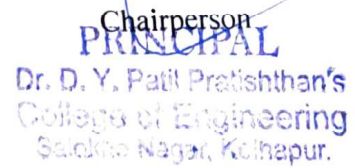 Chairperson
PRINCIPAL
Dr. D. Y. Patil Pratishthan's
College of Engineering
Salokhe Nagar, Kolhapur.